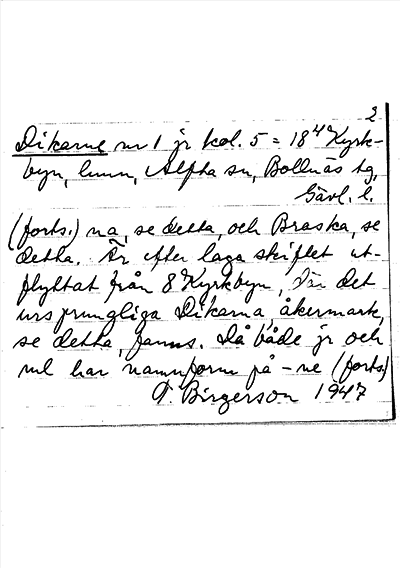 2
Dikarne nr 1 jr kol. 5 = 18⁴ Kyrk-
byn, hmn, Alfta sn, Bollnäs tg,
Gävl. l.
(forts.) na, se detta, och Braska, se
detta. Är efter laga skiftet ut-
flyttat från 8⁴ Kyrkbyn, där det
ursprungliga Dikarna, åkermark,
se detta, fanns. Då både jr och
ml har namnform på -ne (forts.)
Birgerson 1947